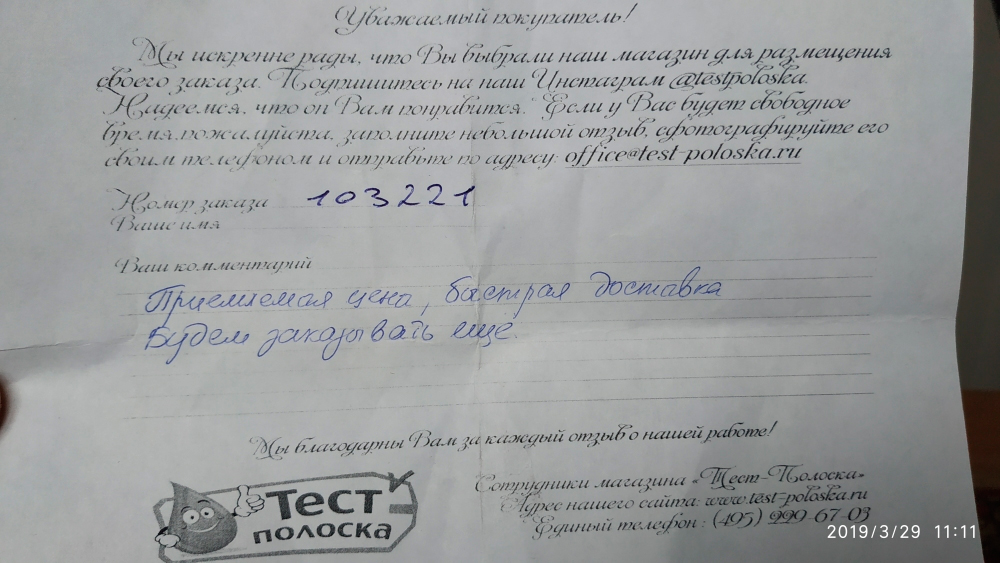 Уважаемый покупатель!
Мы искренне рады, что Вы выбрали наш магазин для размещения
своего заказа. Подпишитесь на наш Инстаграм @testpoloska.
Надеемся, что он Вам понравится. Если у Вас будет свободное
время, пожалуйста, заполните небольшой отзыв, сфотографируйте его
своим телефоном и отправьте по адресу: office@test-poloska.ru
Номер заказа 103221
Ваше имя
Ваш комментарий
Приемлемая цена, быстрая доставка
Будем заказывать ещё.
Мы благодарны Вам за каждый отзыв о нашей работе!
Тест
полоска
Сотрудники магазина «Тест-Полоска»
Адрес нашего сайта: www.test-poloska.ru
Единый телефон : (495) 229-67-03
2019/3/29 11:11